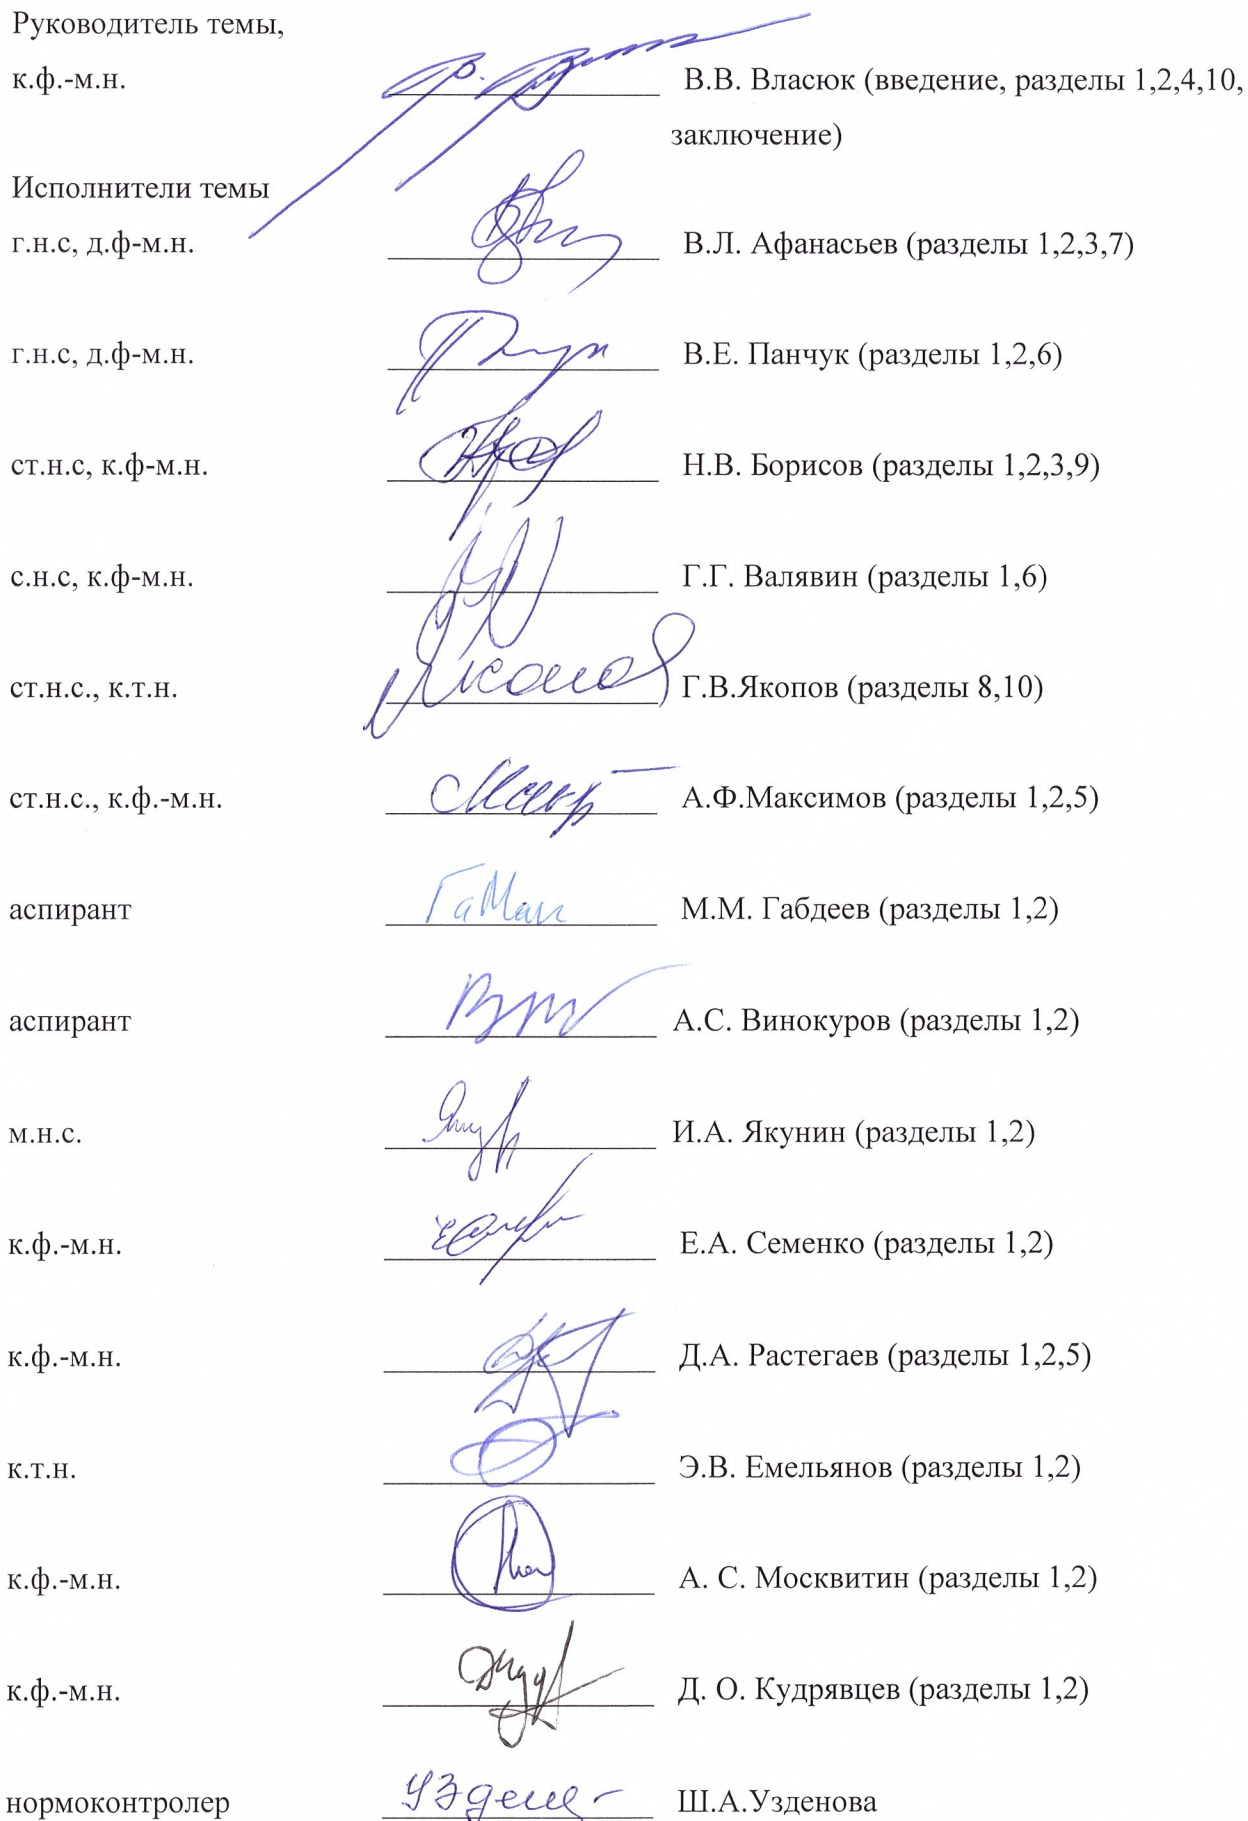 Руководитель темы,
к.ф.-м.н. В.В. Власюк (введение, разделы 1,2,4,10,
заключение)
Исполнители темы
г.н.с, д.ф-м.н. В.Л. Афанасьев (разделы 1,2,3,7)
г.н.с, д.ф-м.н. В.Е. Панчук (разделы 1,2,6)
ст.н.с, к.ф-м.н. Н.В. Борисов (разделы 1,2,3,9)
с.н.с, к.ф-м.н. Г.Г. Валявин (разделы 1,6)
ст.н.с., к.т.н. Г.В.Якопов (разделы 8,10)
ст.н.с., к.ф.-м.н. А.Ф.Максимов (разделы 1,2,5)
аспирант М.М. Габдеев (разделы 1,2)
аспирант А.С. Винокуров (разделы 1,2)
м.н.с. И.А. Якунин (разделы 1,2)
к.ф.-м.н. Е.А. Семенко (разделы 1,2)
к.ф.-м.н. Д.А. Растегаев (разделы 1,2,5)
к.т.н. Э.В. Емельянов (разделы 1,2)
к.ф.-м.н. А. С. Москвитин (разделы 1,2)
к.ф.-м.н. Д. О. Кудрявцев (разделы 1,2)
нормоконтролер Ш.А.Узденова